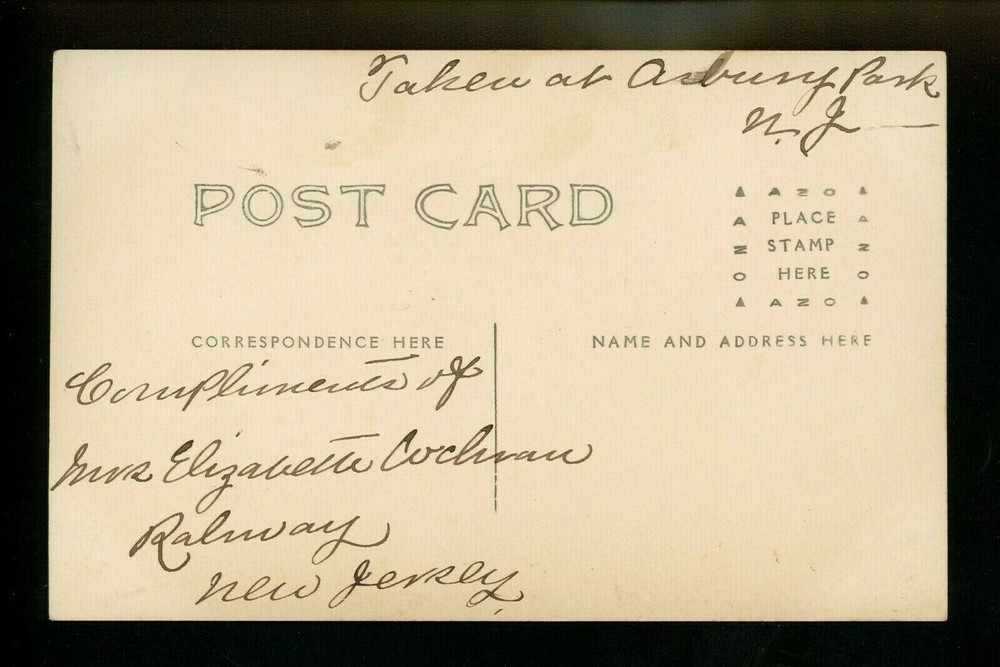 Taken at Asbury Park
N. J.
POST CARD
AZO
PLACE
STAMP
HERE
AZO
AZO
AZO
CORRESPONDENCE HERE
NAME AND ADDRESS HERE
Compliments of
Mrs Elizabeth Cochran
Rahway
New Jersey,